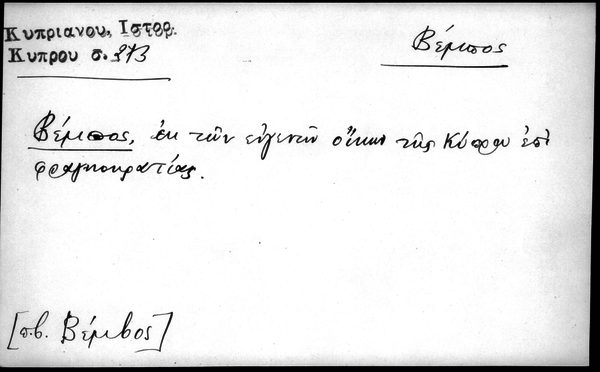 Κυπριανου, Ιστορ.
Κυπρου σ. 273
Βέμπος
Βέμπος, ἐκ τῶν εὐγενῶν οἴκων τῆς Κύπρου ἐπὶ
φραγκοκρατίας.
[π.β. Βέμβος]